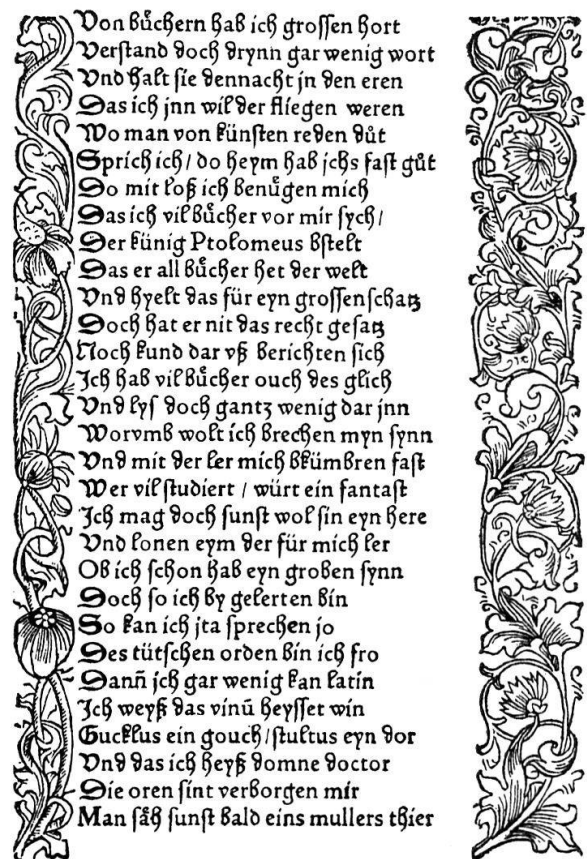 Von bůchern hab ich grossen hort
Verstand doch drynn gar wenig wort
Vnd halt sie dennacht jn den eren
Das ich jnn wil der fliegen weren
Wo man von künsten reden důt
Sprich ich / do heym hab jchs fast gůt
Do mit loß ich benügen mich
Das ich vil bůcher vor mir sych /
Der künig Ptolomeus bstelt
Das er all bůcher het der welt
Vnd hyelt das für eyn grossen schatz
Doch hat er nit das recht gesatz
Noch kund dar vß berichten sich
Ich hab vil bůcher ouch des glich
Vnd lys doch gantz wenig dar jnn
Worvmb wolt ich brechen myn synn
Vnd mit der ler mich bkümbren fast
Wer vil studiert / würt ein fantast
Ich mag doch sunst wol sin eyn here
Vnd lonen eym der für mich ler
Ob ich schon hab eyn groben synn
Doch so ich by gelerten bin
So kan ich jta sprechen jo
Des tütschen orden bin ich fro
Dann̄ jch gar wenig kan latin
Ich weyß das vinū heysset win
Gucklus ein gouch / stultus eyn dor
Vnd das ich heyß domne doctor
Die oren sint verborgen mir
Man sæh sunst bald eins mullers thier